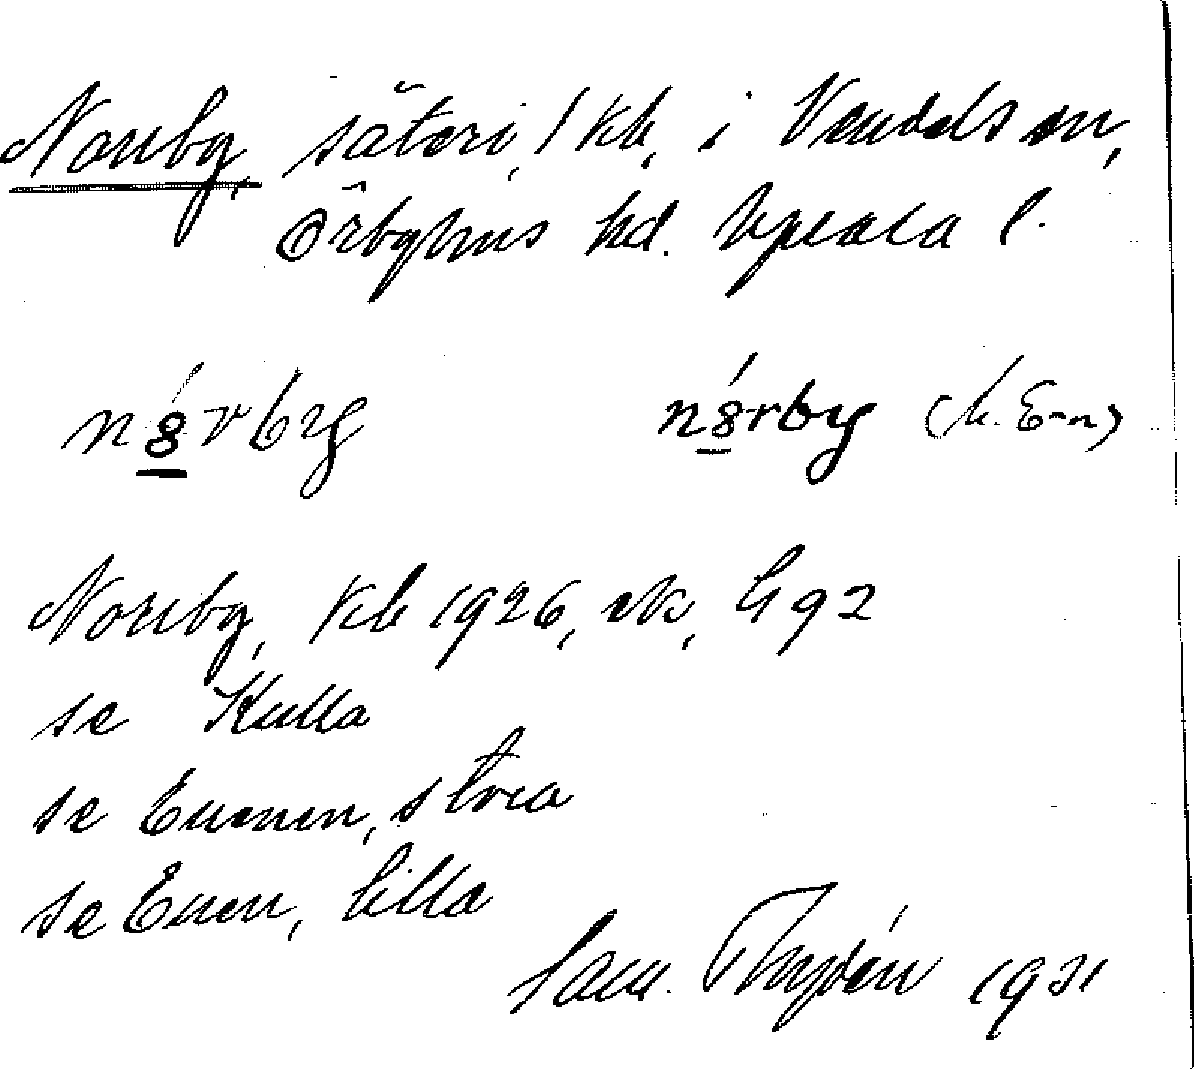 Norrby, säteri, 1 kb, i Vendels sn,
Örbyhus hd. Uppsala l.
n8́rby n8́rby (k. E-n)
Norrby, Kb 1926, ek, G92
se Kulla
se Enen, stora
se Enen, lilla
Sam. Thydén 1931